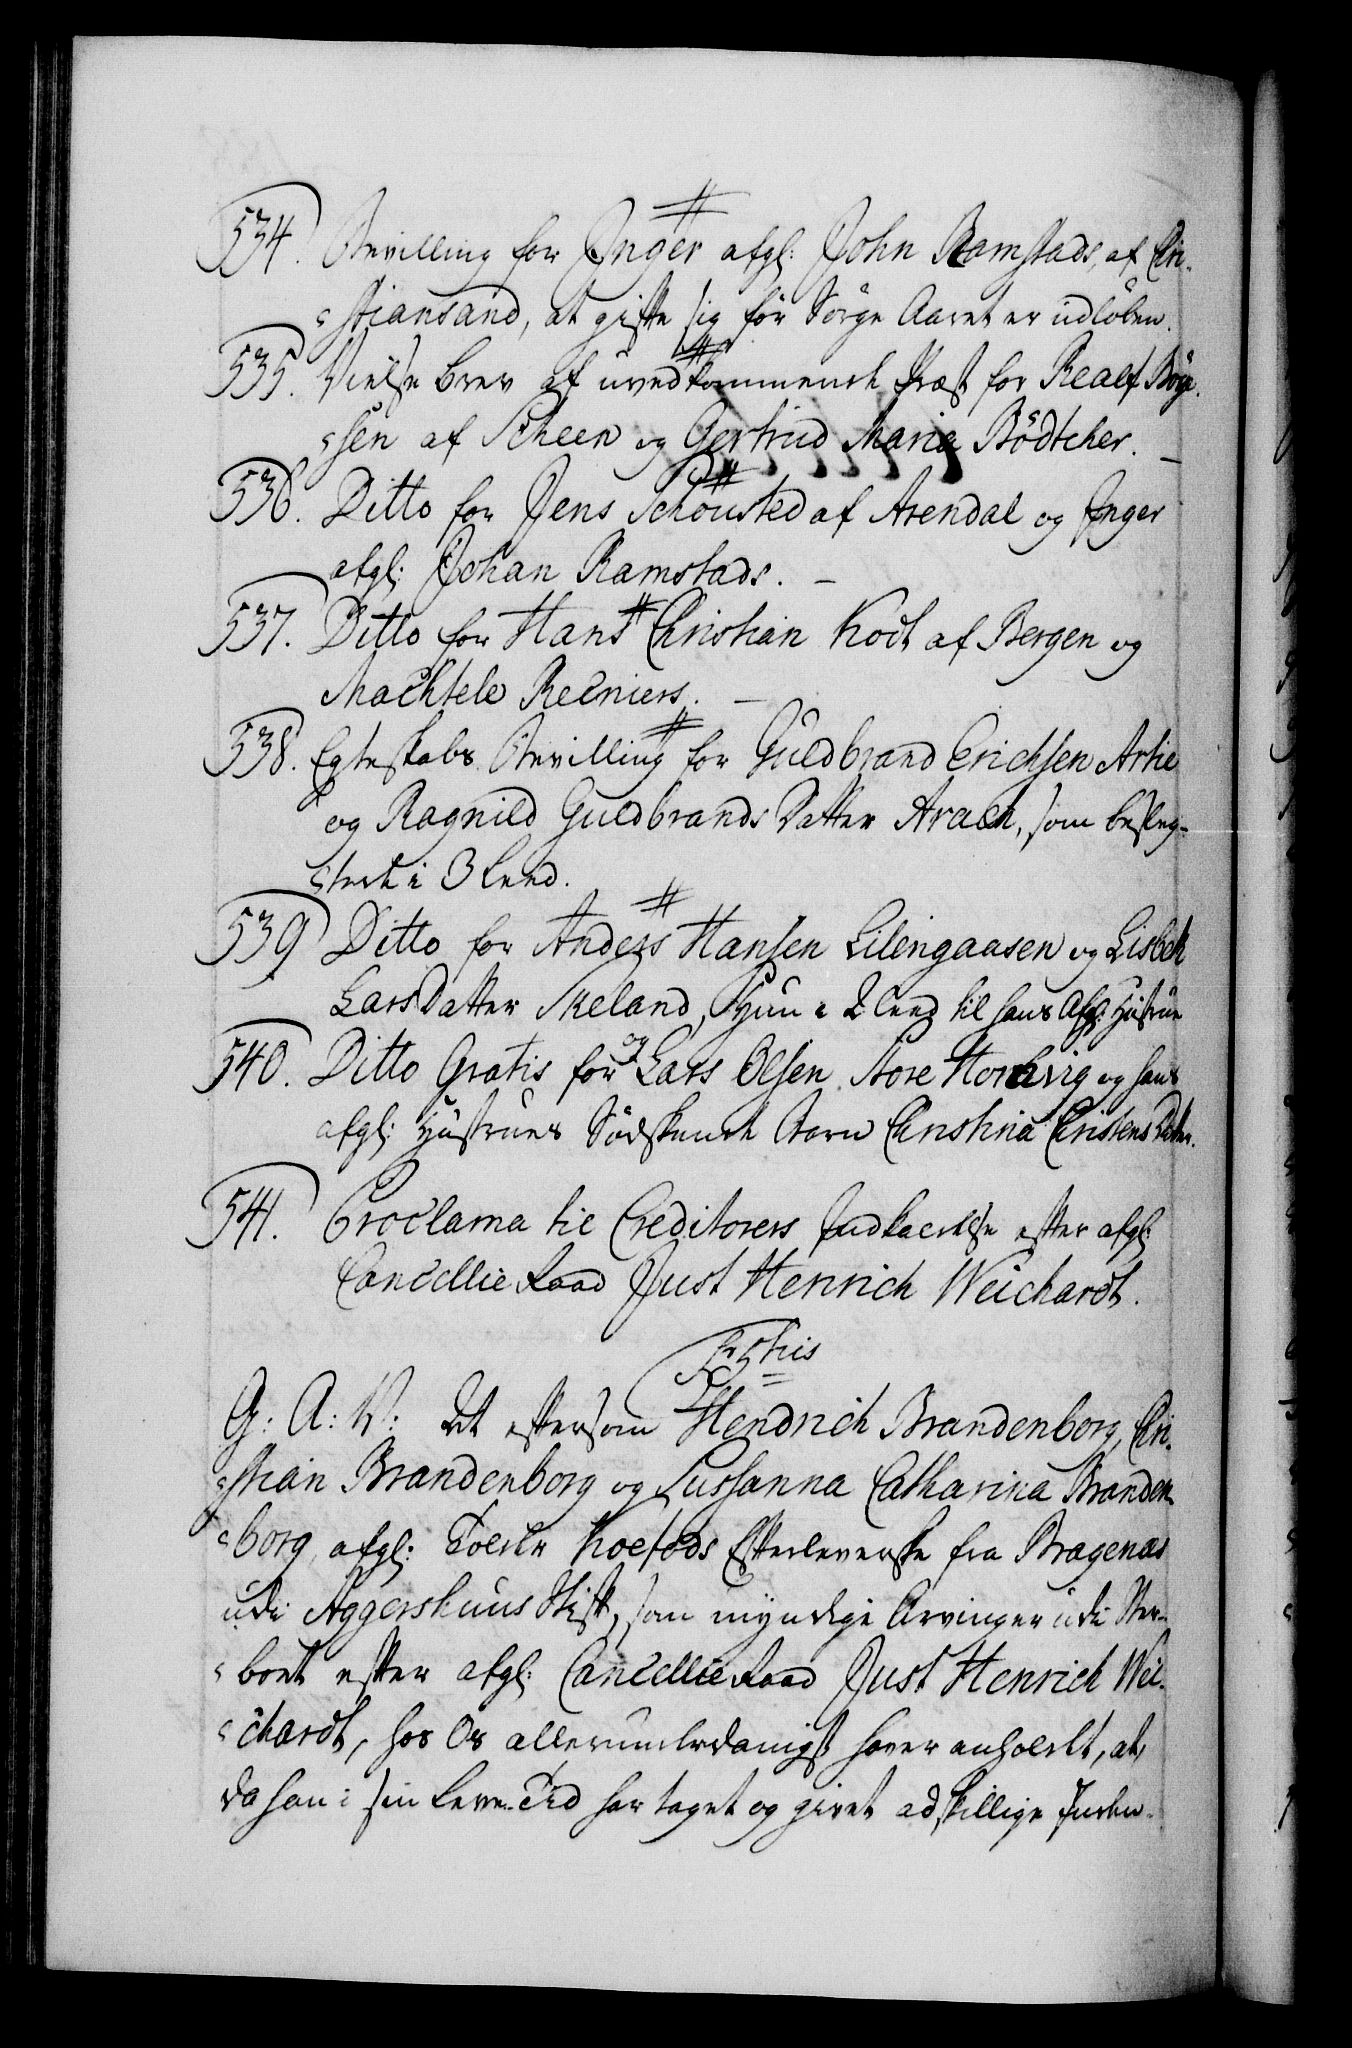 534. Bevilling for Inger afgl: John Ramstads, af Chri-
stiansand, at gifte sig før Sørge Aaret er udløben.
535. Vielse Brev af uvedkommende Præst for Realf Böye-
sen af Scheen og Gertrud Maria Bödtcher. —
536. Ditto for Jens Schousted af Arendal og Inger
afgl: Johan Ramstads. —
537. Ditto for Hans Christian Kodt af Bergen og
Machtele Reiniers. —
538. Egteskabs Bevilling for Guldbrand Erichsen
og Ragnild Guldbrands Datter, som besleg-
tede i 3 Leed.
539 Ditto for Anders Hansen Lilengaasen og Lisbeth
Lars Datter Skeland, Hun i 2 Leed til hans Afgl: Hustrue
540. Ditto Gratis for Lars Olsen Store og hans
afgl: Hustrues Södskende Barn Christina Christens Datter.
541. Proclama til Creditorers Indkaldelse efter afgl:
Cancellie Raad Just Henrich Weichardt.
G: A: V: at eftersom Hendrich Brandenborg, Chri-
stian Brandenborg og Sussanna Catharina Branden-
borg, afgl: Tolder Koefods Efterleverske fra Bragenæs
udi Aggershuus Stift, som myndige Arvinger udi Ster-
boet efter afgl: Cancellie Raad Just Henrich Wei-
chardt, hos Os allerunderdanigst haver anholdt, at,
da han i sin Leve-Tid har taget og givet adskillige